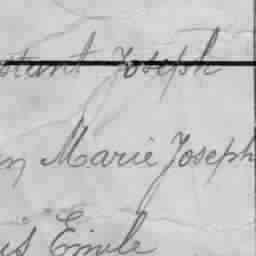 stant Joseph
n Marie Joseph
is Emile